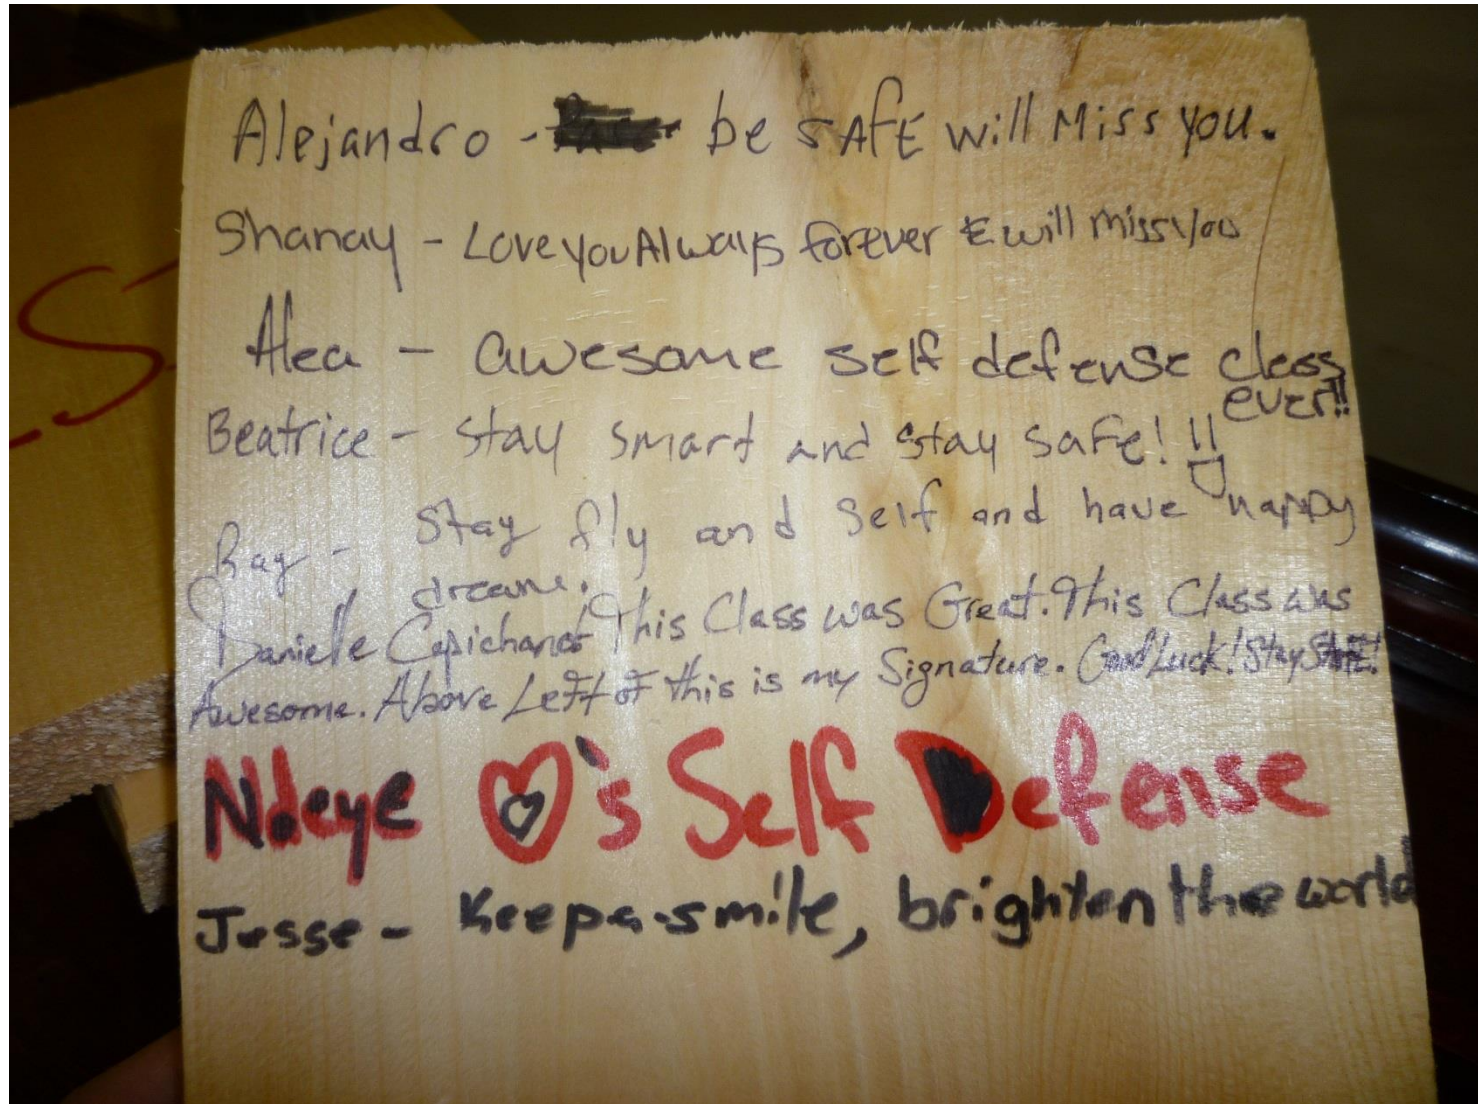 Alejandro - be SAfE will Miss you.
Shanay - Love you Always forever & will miss you
Alea - awesome self defense class
ever!!
Beatrice - Stay smart and stay safe!!!
Ray - Stay fly and Self and have happy
dreams.
Danielle This Class was Great. This Class was
Awesome. Above Left of this is my Signature. Good Luck! Stay
Ndeye ♡'s Self Defense
Jesse - Keep a smile, brighten the world